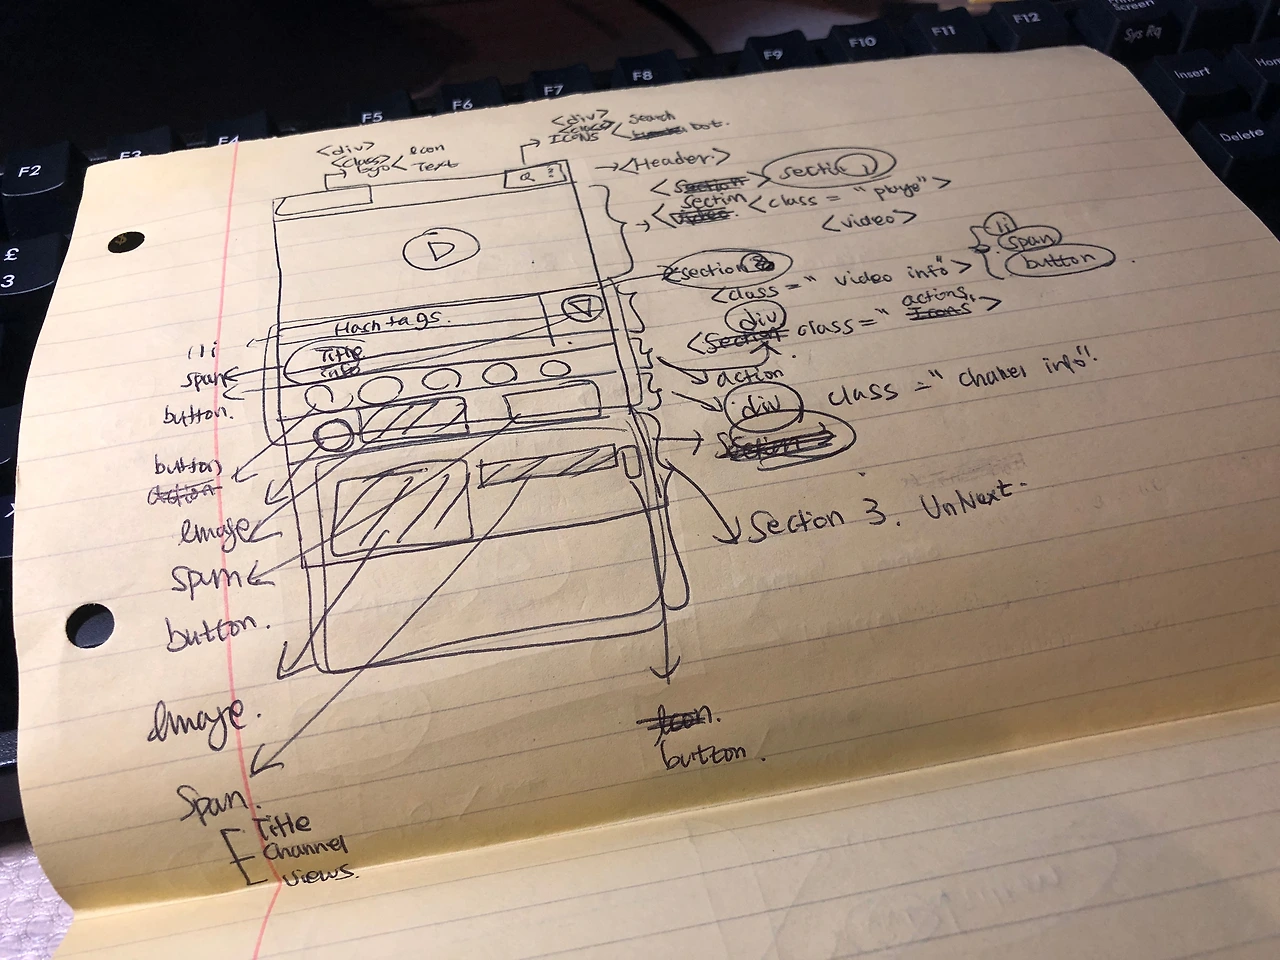 F2
F3
F4
F5
F6
F7
F8
F9
F10
F11
F12
Screen
Sys Rq
Insert
Delete
£
3
<div>
<class>
logo < icon
Text
<div>
<class>
ICONS < Search
bot.
<Header>
<section> section 1
section
<video. <class = "playe">
<video>
section 2
<class = "video info">
li
span
button
div
<section class = " actions,
Icons >
action
div class = "channel info".
section 2
Section 3. UnNext.
Hashtags.
Title
info
li
span
button.
button
action
Image
span
button.
Image.
Span.
Title
Channel
views.
Icon.
button.